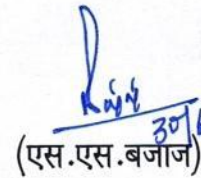 30/6
(एस.एस.बजाज)